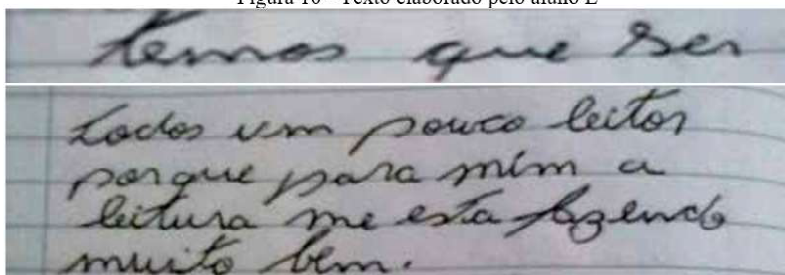 Figura 10 - Texto elaborado pelo aluno E
temos que ser
todos um pouco leitor
porque para mim a
leitura me esta fazendo
muito bem.